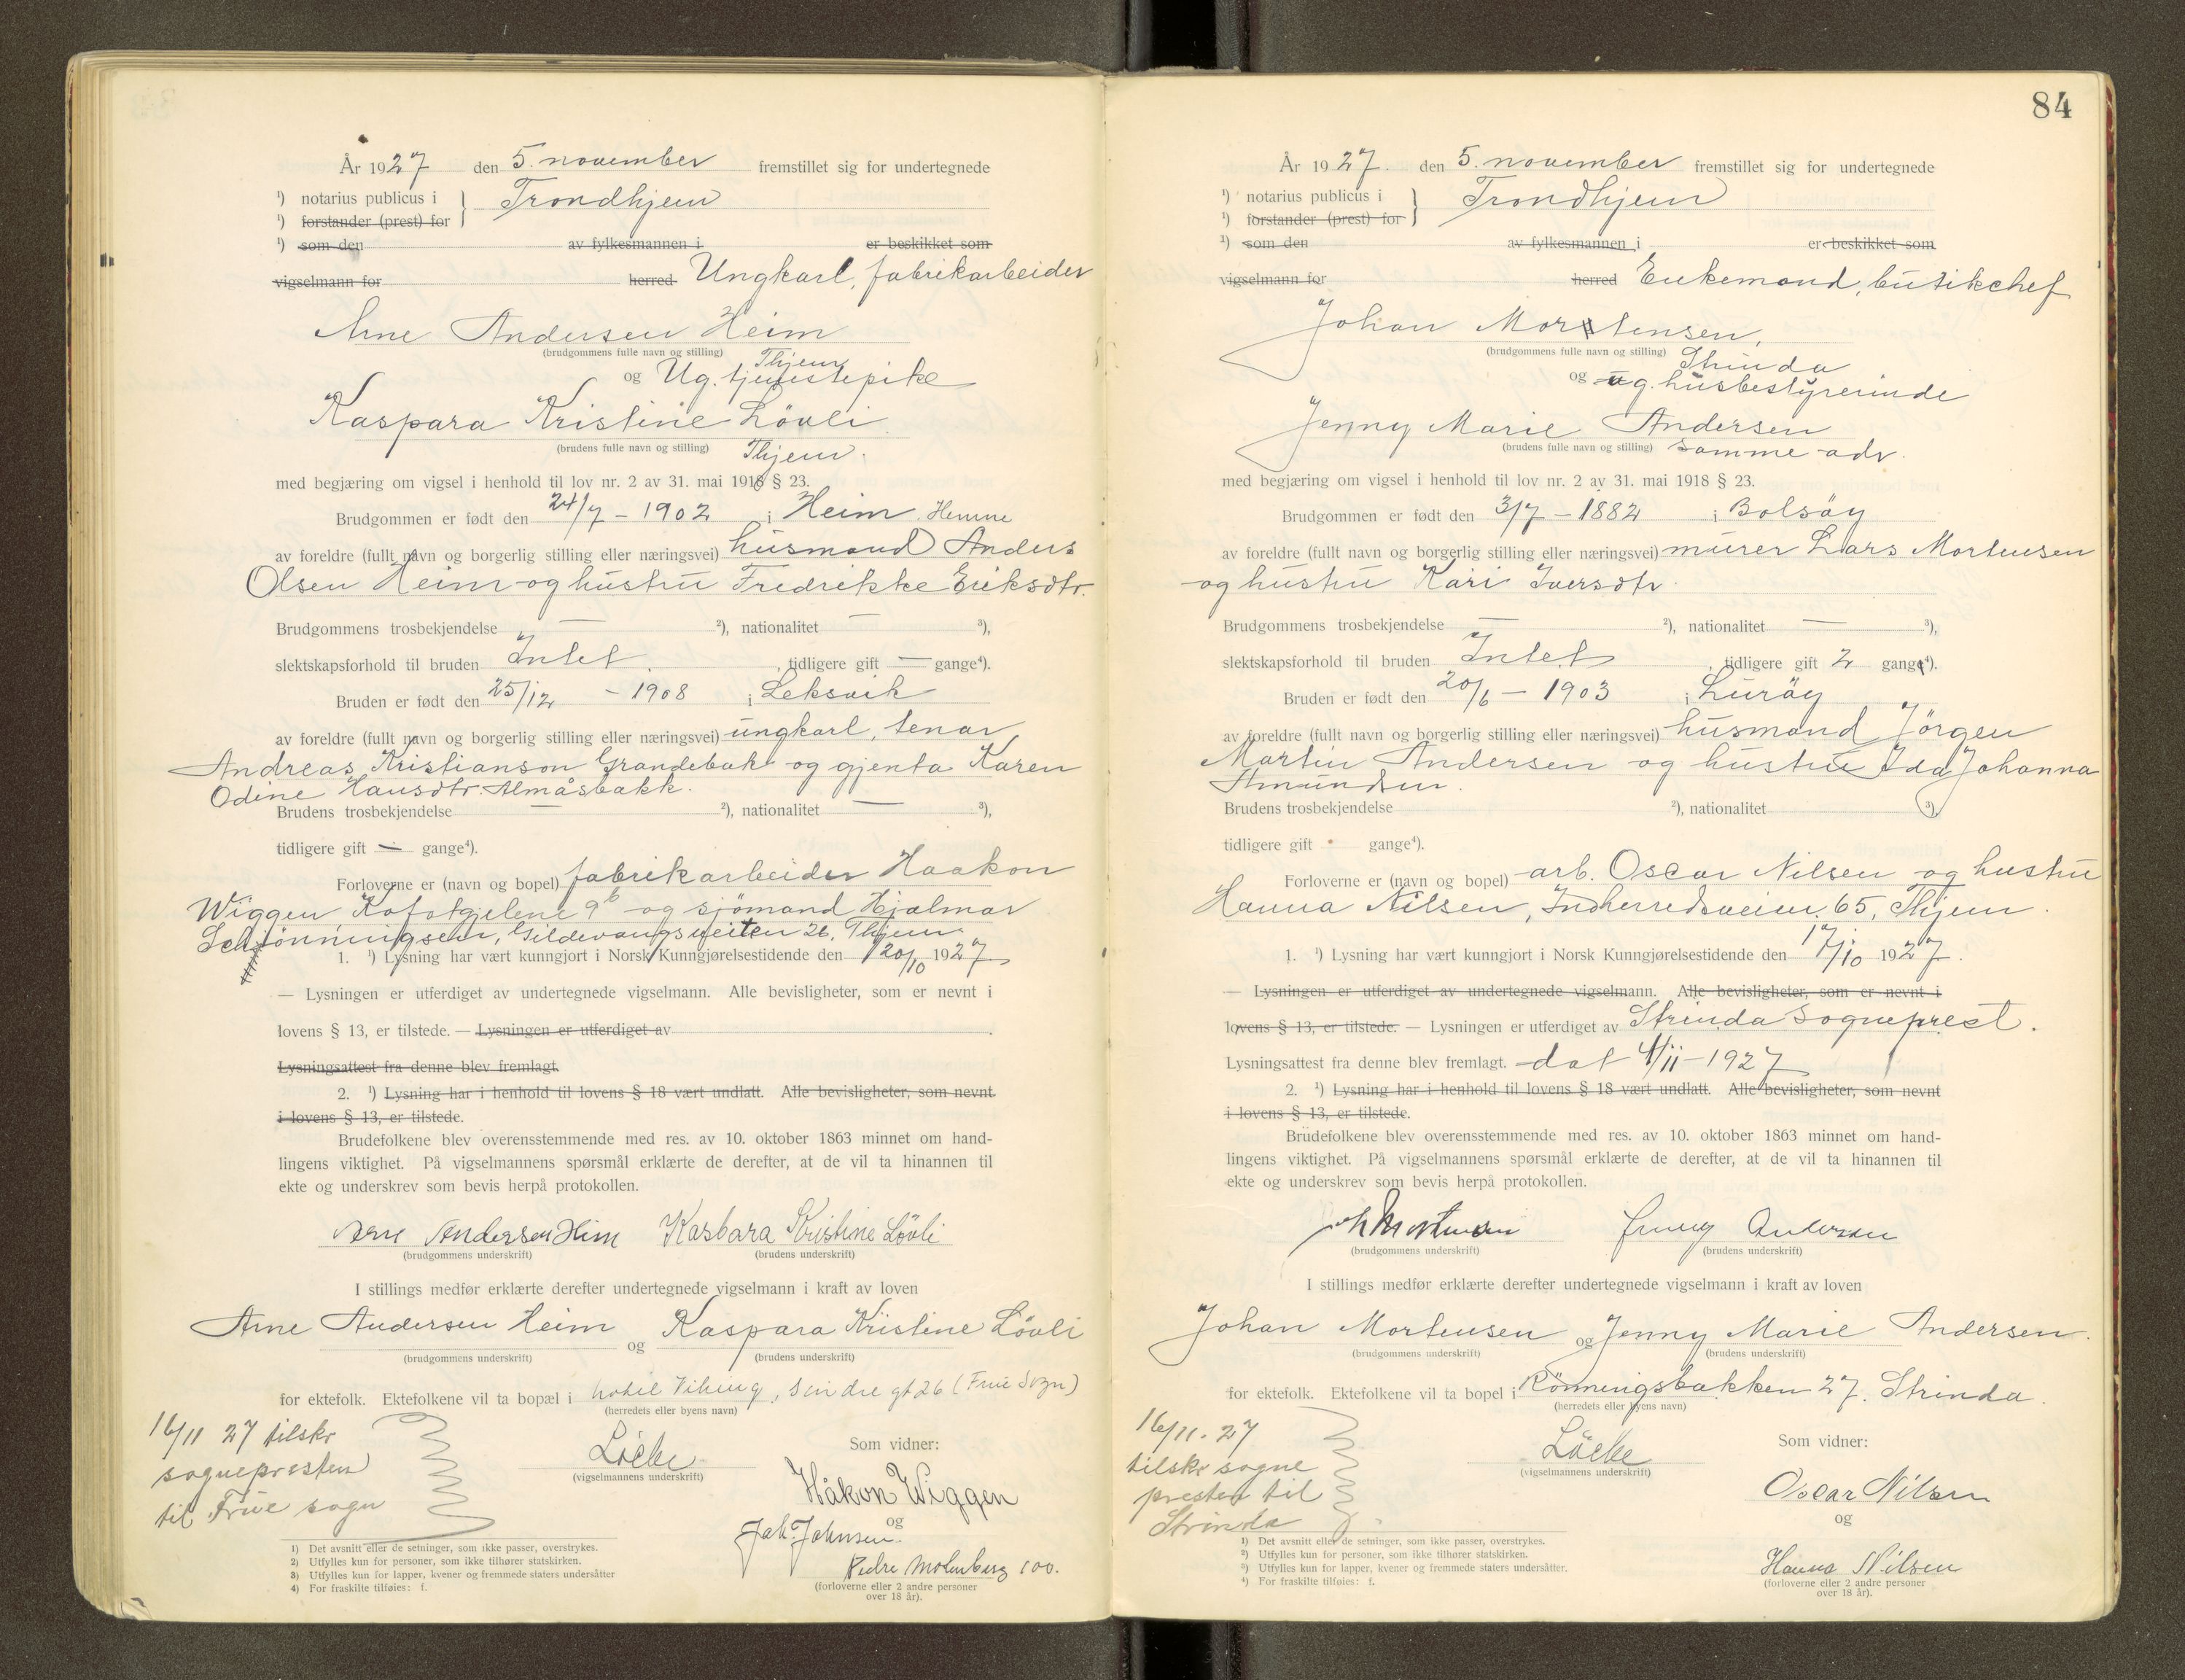 År 1927 den 5. november fremstillet sig for undertegnede
¹) notarius publicus i } Trondhjem
¹) forstander (prest) for
¹) som den av fylkesmannen i er beskikket som
vigselmann for herred Ungkarl, fabrikarbeider
Arne Andersen Heim
(brudgommens fulle navn og stilling) Thjem
og Ug. tjenestepike
Kaspara Kristine Lövli
(brudens fulle navn og stilling) Thjem.
med begjæring om vigsel i henhold til lov nr. 2 av 31. mai 1918 § 23.
Brudgommen er født den 24/7 - 1902 i Heim, Hemne
av foreldre (fullt navn og borgerlig stilling eller næringsvei) husmand Anders
Olsen Heim og hustru Fredrikke Eriksdtr.
Brudgommens trosbekjendelse — ²), nationalitet — ³),
slektskapsforhold til bruden Intet , tidligere gift — gange⁴).
Bruden er født den 25/12 - 1908 i Leksvik
av foreldre (fullt navn og borgerlig stilling eller næringsvei) ungkarl, senar
Andreas Kristianson Grandebak og gjenta Karen
Odine Hansdtr. Almåsbakk.
Brudens trosbekjendelse — ²), nationalitet — ³),
tidligere gift — gange⁴).
Forloverne er (navn og bopel) fabrikarbeider Haakon
Wiggen og sjömand Hjalmar
Schjönningsen, Gildevangsveiten 26, Thjem.
1. ¹) Lysning har vært kunngjort i Norsk Kunngjørelsestidende den 20/10 1927
— Lysningen er utferdiget av undertegnede vigselmann. Alle bevisligheter, som er nevnt i
lovens § 13, er tilstede. — Lysningen er utferdiget av .
Lysningsattest fra denne blev fremlagt.
2. ¹) Lysning har i henhold til lovens § 18 vært undlatt. Alle bevisligheter, som nevnt
i lovens § 13, er tilstede.
Brudefolkene blev overensstemmende med res. av 10. oktober 1863 minnet om hand-
lingens viktighet. På vigselmannens spørsmål erklærte de derefter, at de vil ta hinannen til
ekte og underskrev som bevis herpå protokollen.
Arne Andersen Heim Kasbara Kristine Lövli
(brudgommens underskrift) (brudens underskrift)
I stillings medfør erklærte derefter undertegnede vigselmann i kraft av loven
Arne Andersen Heim og Kaspara Kristine Lövli
(brudgommens underskrift) (brudens underskrift)
for ektefolk. Ektefolkene vil ta bopæl i hotel Viking, Sindre gt 26 (Frue Sogn)
(herredets eller byens navn)
16/11 27 tilskr
sognepresten
til Frue sogn
Löcke
(vigselmannens underskrift)
Som vidner:
Håkon Wiggen
og
Joh. Johnsen.
Pedre Molenberg 100.
(forloverne eller 2 andre personer
over 18 år).
1) Det avsnitt eller de setninger, som ikke passer, overstrykes.
2) Utfylles kun for personer, som ikke tilhører statskirken.
3) Utfylles kun for lapper, kvener og fremmede staters undersåtter
4) For fraskilte tilføies: f.
84
År 1927. den 5. november fremstillet sig for undertegnede
¹) notarius publicus i } Trondhjem
¹) forstander (prest) for
¹) som den av fylkesmannen i er beskikket som
vigselmann for herred Enkemand, butikchef
Johan Mortensen,
(brudgommens fulle navn og stilling) Strinda
og ug. husbestyrerinde
Jenny Marie Andersen
(brudens fulle navn og stilling) samme adr.
med begjæring om vigsel i henhold til lov nr. 2 av 31. mai 1918 § 23.
Brudgommen er født den 3/7 - 1882 i Bolsöy
av foreldre (fullt navn og borgerlig stilling eller næringsvei) murer Lars Mortensen
og hustru Kari Iversdtr
Brudgommens trosbekjendelse — ²), nationalitet — ³),
slektskapsforhold til bruden Intet , tidligere gift 2 gange⁴).
Bruden er født den 20/6 - 1903 i Luröy
av foreldre (fullt navn og borgerlig stilling eller næringsvei) husmand Jörgen
Martin Andersen og hustru Ida Johanna
Amundsen.
Brudens trosbekjendelse ²), nationalitet ³),
tidligere gift gange⁴).
Forloverne er (navn og bopel) arb. Oscar Nilsen og hustru
Hanna Nilsen, Indherredsveien 65, Thjem.
1. ¹) Lysning har vært kunngjort i Norsk Kunngjørelsestidende den 17/10 1927.
— Lysningen er utferdiget av undertegnede vigselmann. Alle bevisligheter, som er nevnt i
lovens § 13, er tilstede. — Lysningen er utferdiget av Strinda Sogneprest.
Lysningsattest fra denne blev fremlagt. dat 4/11 - 1927
2. ¹) Lysning har i henhold til lovens § 18 vært undlatt. Alle bevisligheter, som nevnt
i lovens § 13, er tilstede.
Brudefolkene blev overensstemmende med res. av 10. oktober 1863 minnet om hand-
lingens viktighet. På vigselmannens spørsmål erklærte de derefter, at de vil ta hinannen til
ekte og underskrev som bevis herpå protokollen.
Joh Mortensen Jenny Andersen
(brudgommens underskrift) (brudens underskrift)
I stillings medfør erklærte derefter undertegnede vigselmann i kraft av loven
Johan Mortensen og Jenny Marie Andersen.
(brudgommens underskrift) (brudens underskrift)
for ektefolk. Ektefolkene vil ta bopel i Rönningsbakken 27. Strinda.
(herredets eller byens navn)
16/11. 27
tilskr sogne
presten til
Strinda
Löcke
(vigselmannens underskrift)
Som vidner:
Oscar Nilsen
og
Hanna Nilsen
(forloverne eller 2 andre personer
over 18 år).
¹) Det avsnitt eller de setninger, som ikke passer, overstrykes.
²) Utfylles kun for personer, som ikke tilhører statskirken.
³) Utfylles kun for lapper, kvener og fremmede staters undersåtter.
⁴) For fraskilte tilføies: f.